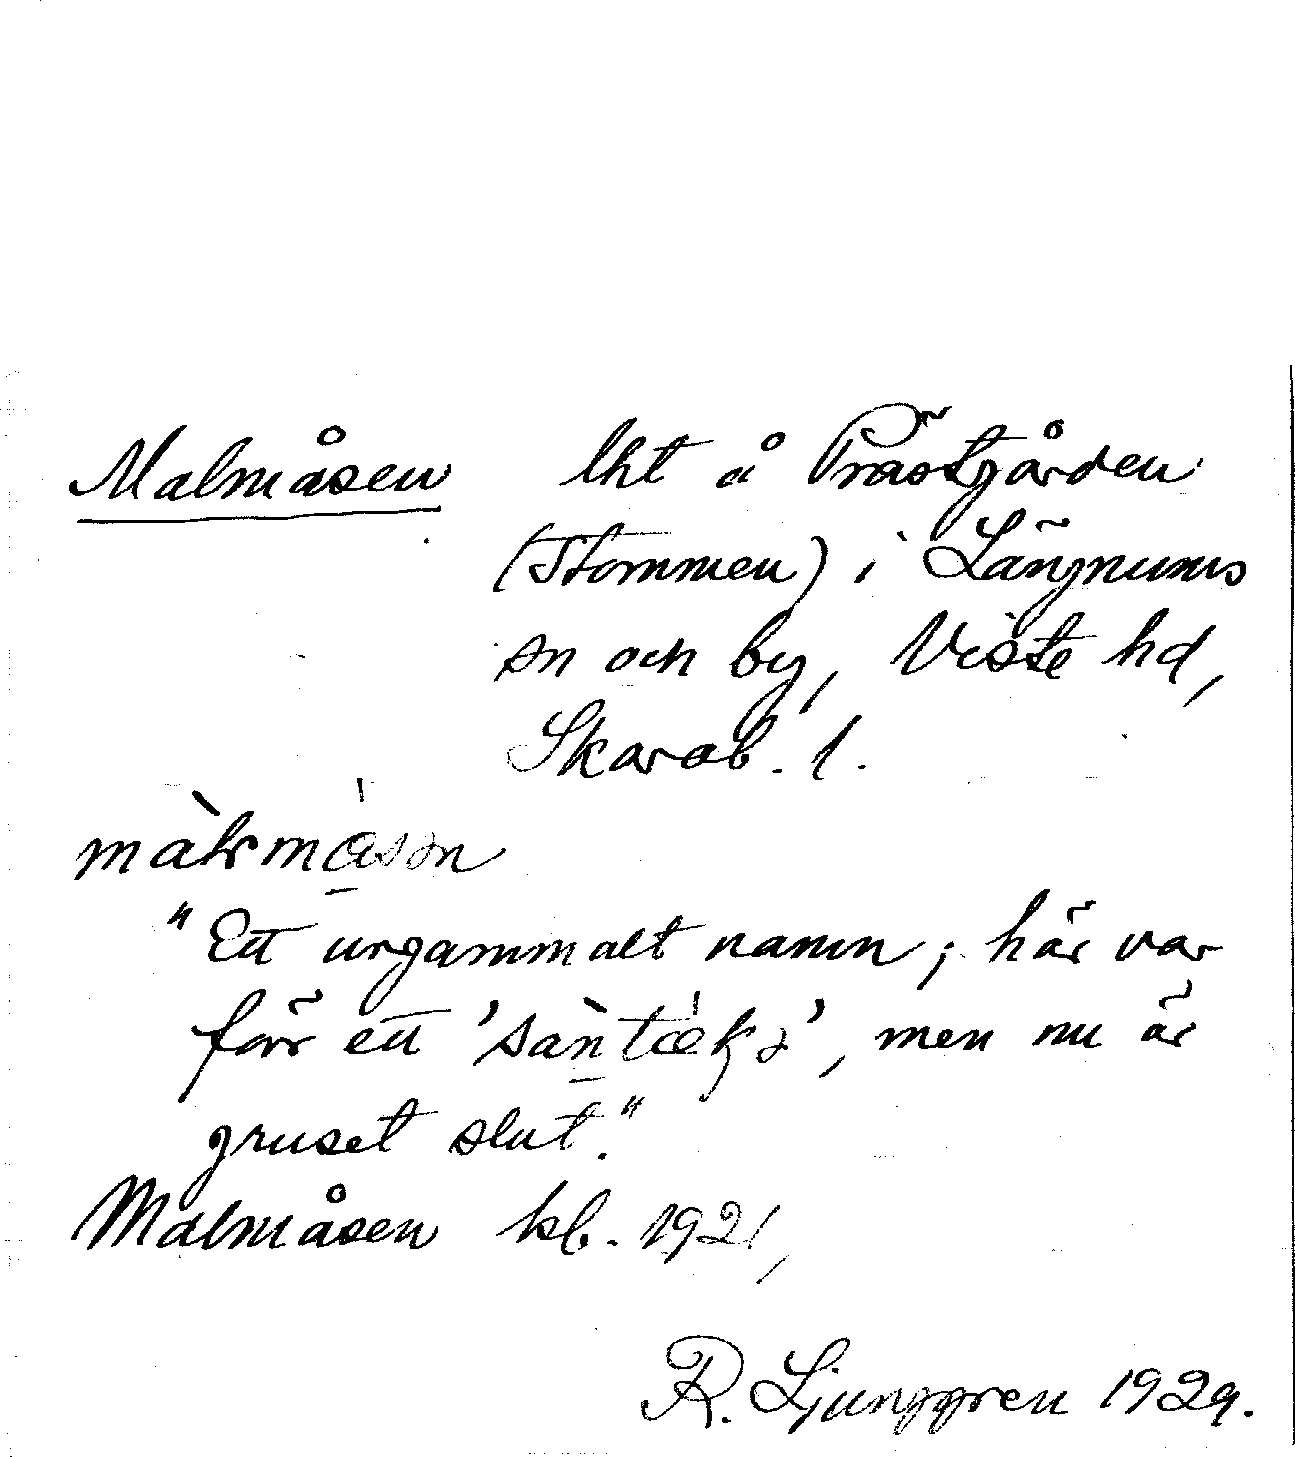 Malmåsen lht å Prästgården
(Stommen) i Längnums
sn och by, Viste hd,
Skarab. l.
"Ett urgammalt namn; här var
förr ett 'sàntækt', men nu är
gruset slut."
Malmåsen kb. 1921,
R. Ljunggren 1929.